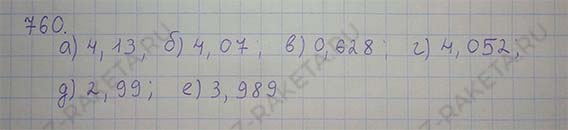 760.
а) 4,13, б) 4,07; в) 0,628; г) 4,052;
д) 2,99; е) 3,989